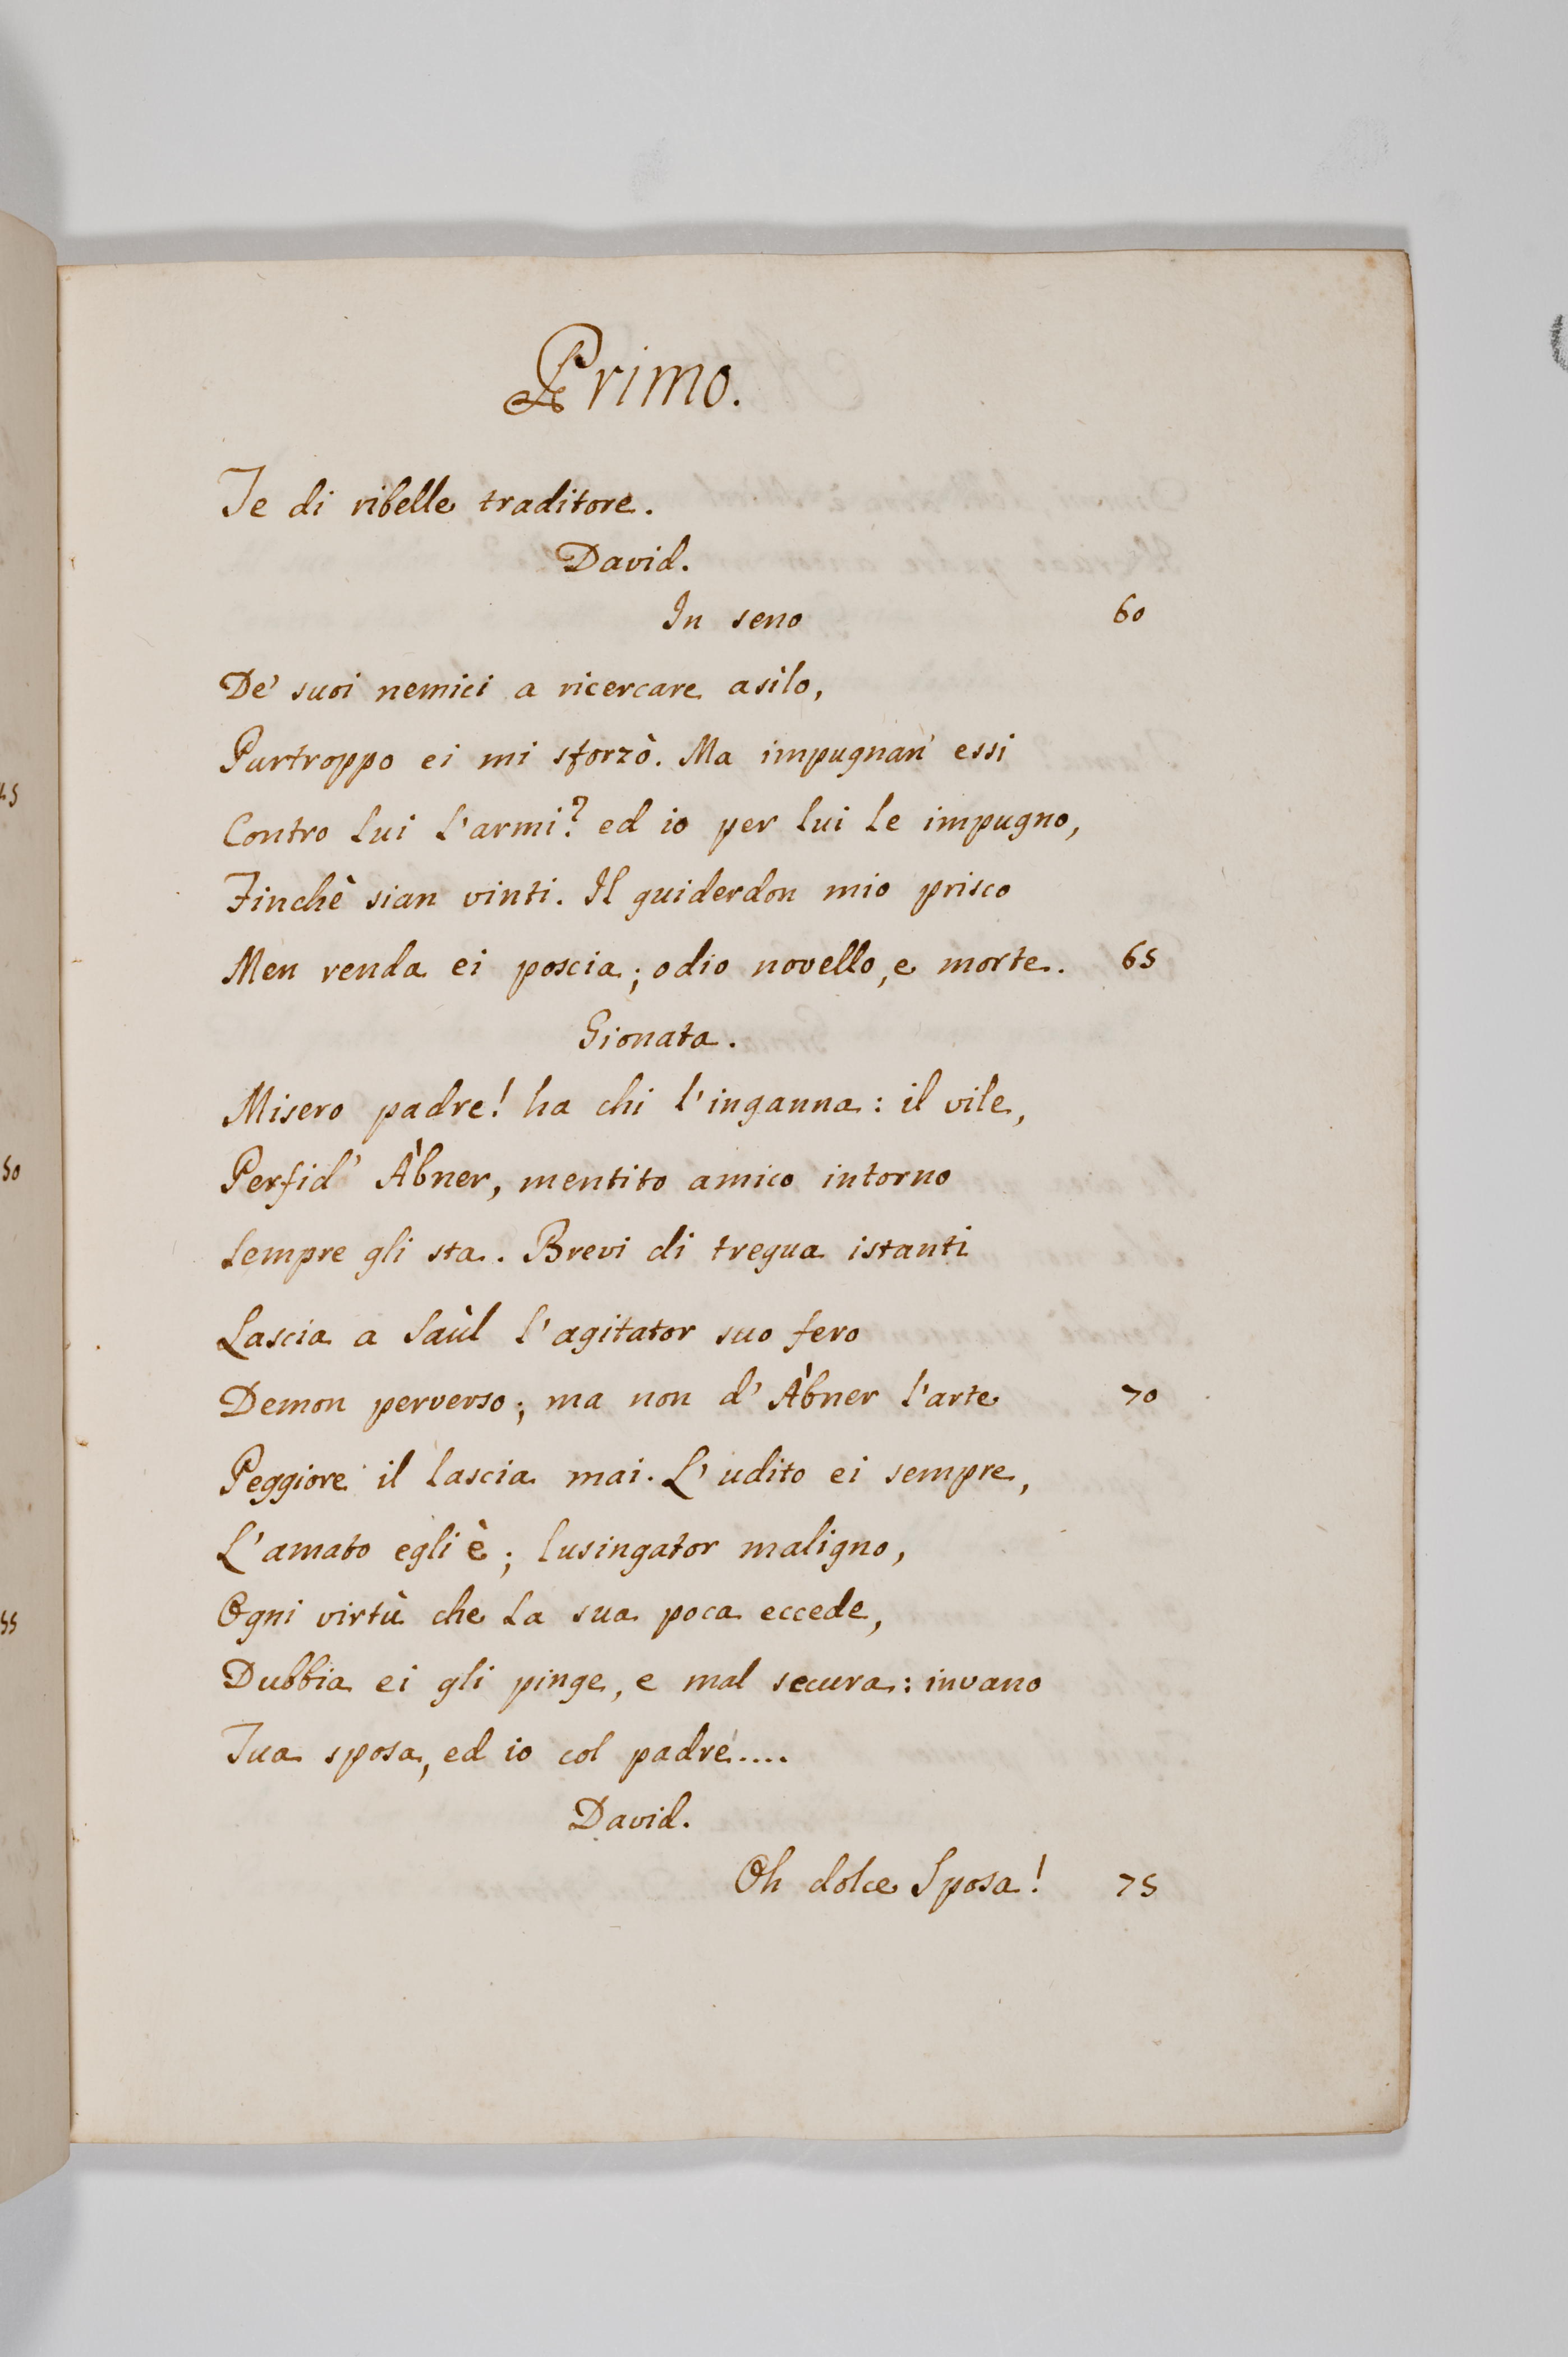 Primo.
Te di ribelle traditore.
David.
In seno 60
De' suoi nemici a ricercare asilo,
Purtroppo ei mi sforzò. Ma impugnan' essi
Contro lui l'armi? ed io per lui le impugno,
Finchè sian vinti. Il guiderdon mio prisco
Men renda ei poscia; odio novello, e morte. 65
Gionata.
Misero padre! ha chi l'inganna: il vile,
Perfid' Àbner, mentito amico intorno
Sempre gli sta. Brevi di tregua istanti
Lascia a Saùl l'agitator suo fero
Demon perverso; ma non d' Àbner l'arte 70
Peggiore il lascia mai. L'udito ei sempre,
L'amato egli è; lusingator maligno,
Ogni virtù che la sua poca eccede,
Dubbia ei gli pinge, e mal secura: invano
Tua sposa, ed io col padre....
David.
Oh dolce Sposa! 75
45
50
55